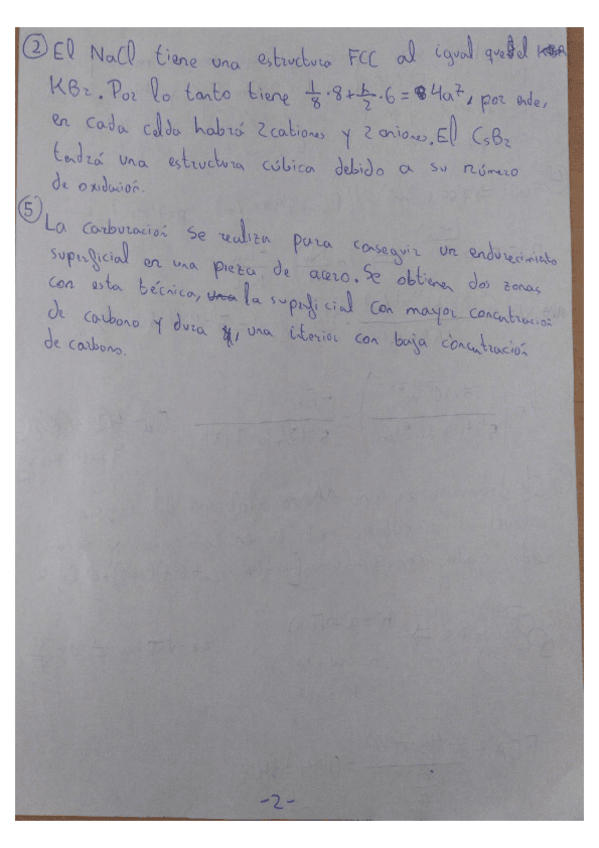 ② El NaCl tiene una estructura FCC al igual que el
KBr. Por lo tanto tiene 1/8 · 8 + 1/2 · 6 = 4at, por ende,
en cada celda habrá 2 cationes y 2 aniones. El CsBr
tendrá una estructura cúbica debido a su número
de oxidación.
⑤
La carburación se realiza para conseguir un endurecimiento
superficial en una pieza de acero. Se obtienen dos zonas
con esta técnica, la superficial con mayor concentración
de carbono y dura y, una interior con baja concentración
de carbono.
-2-